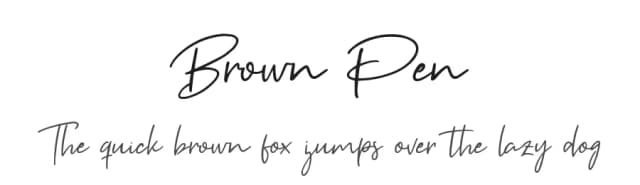 Brown Pen
The quick brown fox jumps over the lazy dog